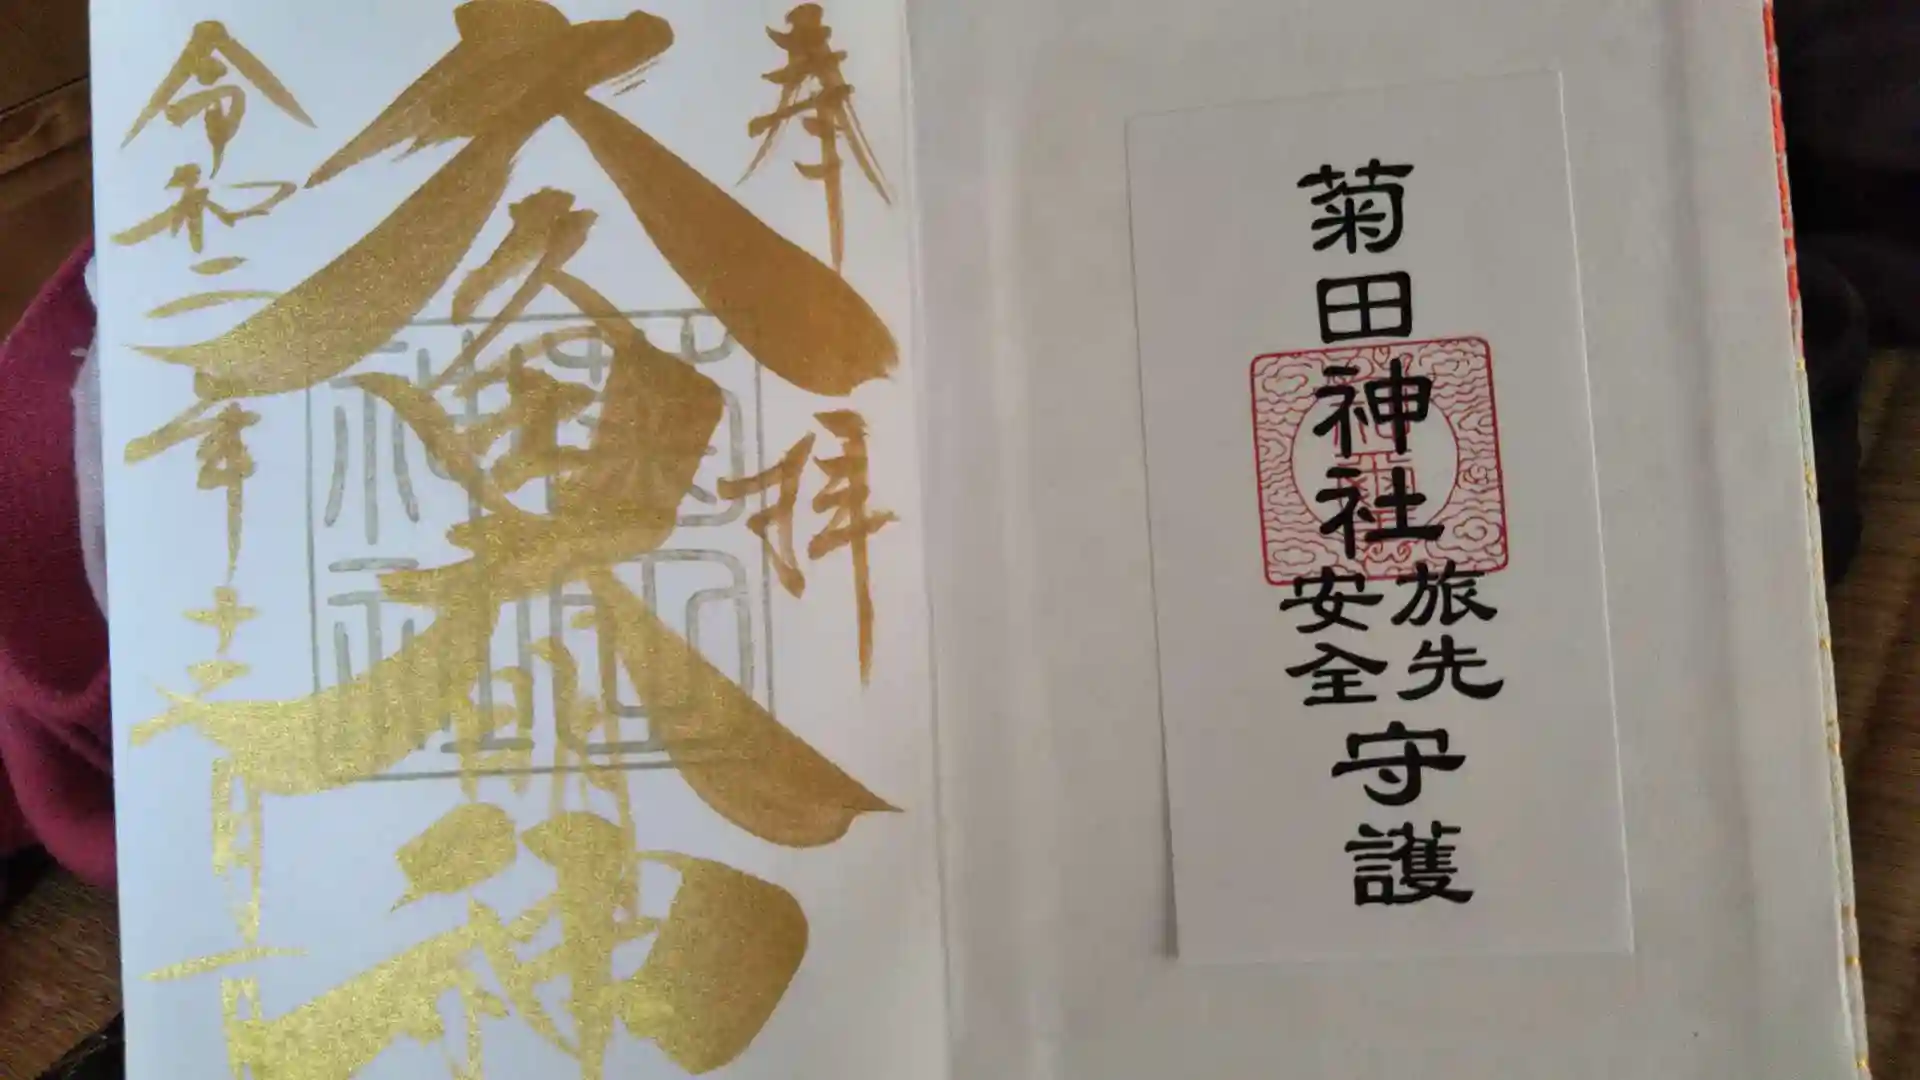 菊田神社
旅先
安全
守護
奉拝
久久田大明神
令和二年十二月